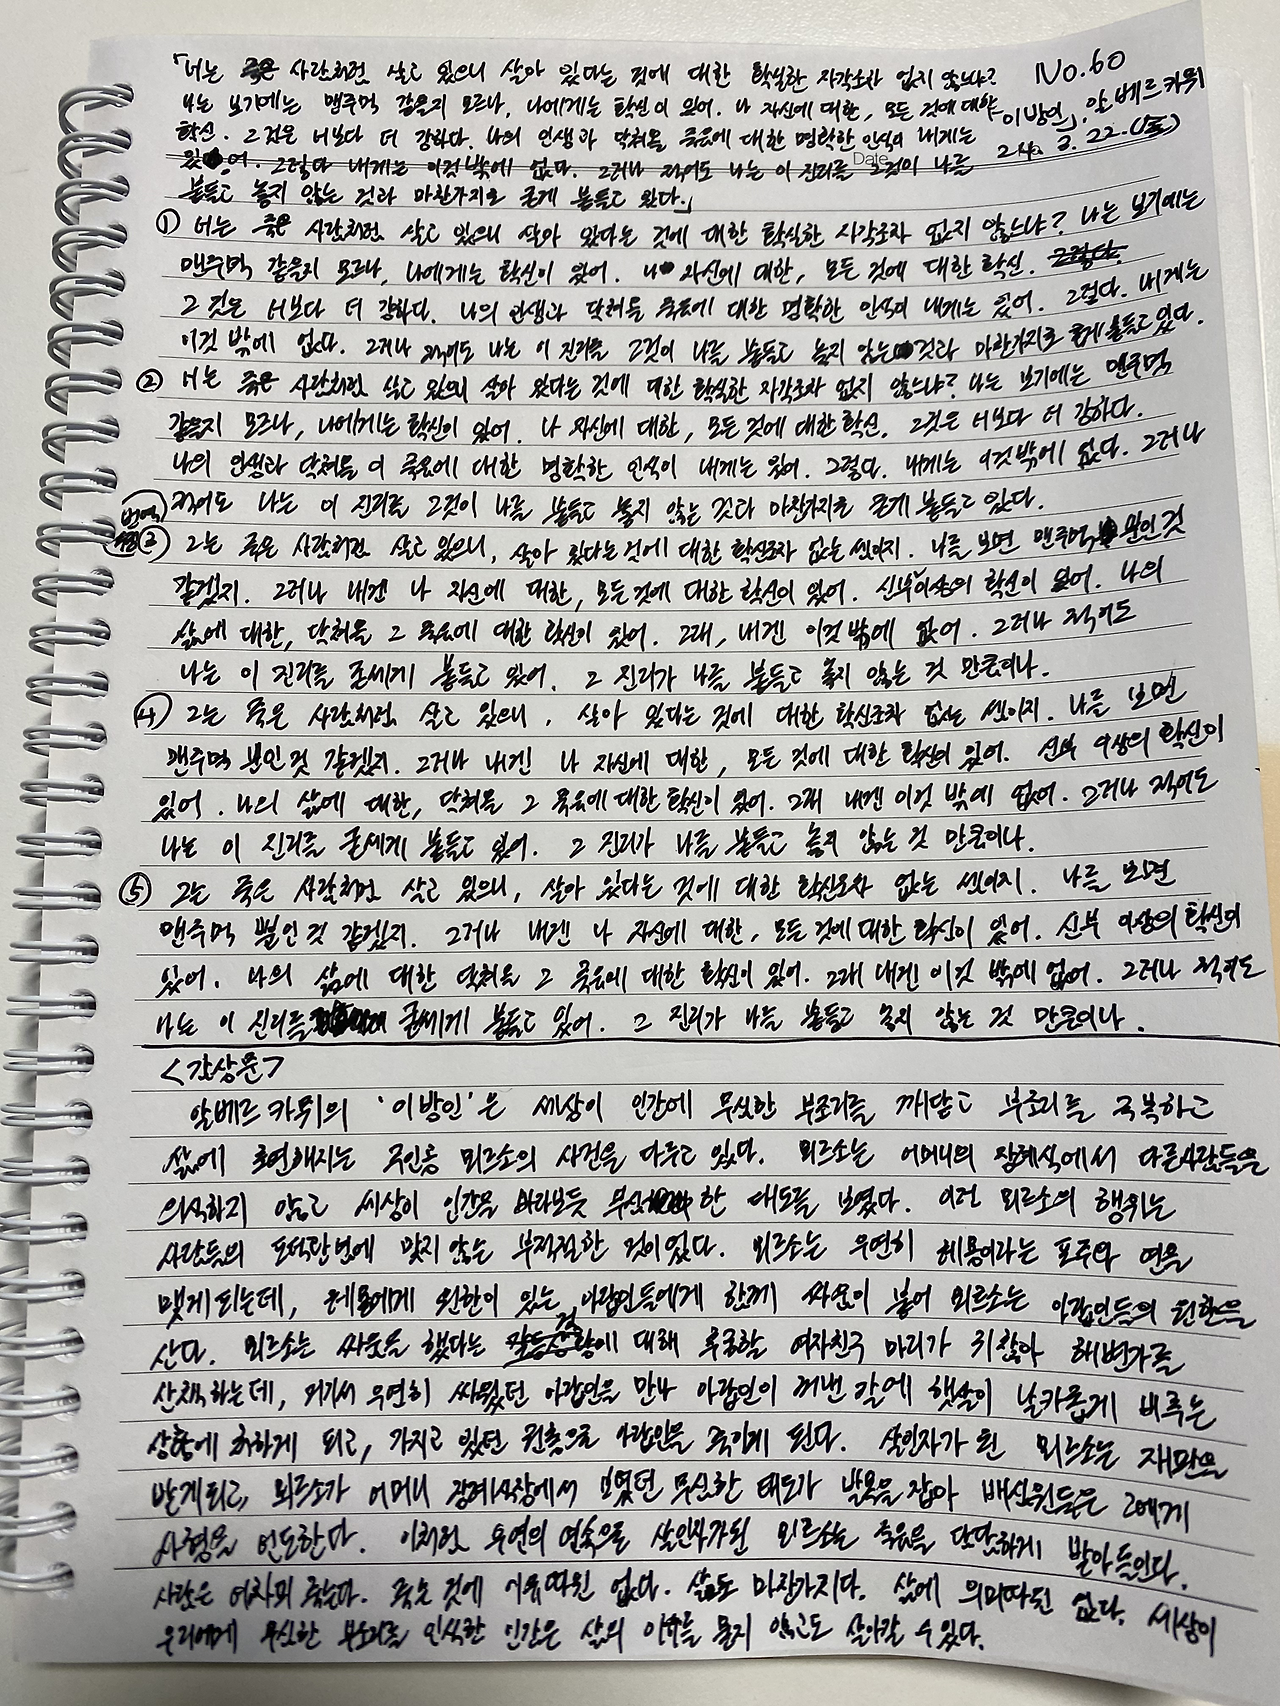 「너는 죽은 사람처럼 살고 있으니 살아 있다는 것에 대한 확실한 자각조차 없지 않느냐? No.60
나는 보기에는 맨주먹 같을지 모르나, 나에게는 확신이 있어. 나 자신에 대한, 모든 것에 대한 「이방인」, 알베르 카뮈
확신. 그것은 너보다 더 강하다. 나의 인생과 닥쳐올 죽음에 대한 명확한 인식이 내게는 24. 3. 22.
있어. 그렇다 내게는 이것 밖에 없다. 그러나 적어도 나는 이 진리를 그것이 나를 Date
붙들고 놓지 않는 것과 마찬가지로 굳게 붙들고 있다.」
① 너는 죽은 사람처럼 살고 있으니 살아 있다는 것에 대한 확실한 자각조차 없지 않느냐? 나는 보기에는
맨주먹 같을지 모르나, 나에게는 확신이 있어. 나 자신에 대한, 모든 것에 대한 확신. 그렇다.
그것은 너보다 더 강하다. 나의 인생과 닥쳐올 죽음에 대한 명확한 인식이 내게는 있어. 그렇다. 내게는
이것 밖에 없다. 그러나 적어도 나는 이 진리를 그것이 나를 붙들고 놓지 않는 것과 마찬가지로 굳게 붙들고 있다.
② 너는 죽은 사람처럼 살고 있으니 살아 있다는 것에 대한 확실한 자각조차 없지 않느냐? 나는 보기에는 맨주먹
같을지 모르나, 나에게는 확신이 있어. 나 자신에 대한, 모든 것에 대한 확신. 그것은 너보다 더 강하다.
나의 인생과 닥쳐올 이 죽음에 대한 명확한 인식이 내게는 있어. 그렇다. 내게는 이것 밖에 없다. 그러나
적어도 나는 이 진리를 그것이 나를 붙들고 놓지 않는 것과 마찬가지로 굳게 붙들고 있다.
번역
③ 그는 죽은 사람처럼 살고 있으니, 살아 있다는 것에 대한 확신조차 없는 셈이지. 나를 보면 맨주먹 뿐인 것
같겠지. 그러나 내겐 나 자신에 대한, 모든 것에 대한 확신이 있어. 신부 이상의 확신이 있어. 나의
삶에 대한, 닥쳐올 그 죽음에 대한 확신이 있어. 그래, 내겐 이것 밖에 없어. 그러나 적어도
나는 이 진리를 굳세게 붙들고 있어. 그 진리가 나를 붙들고 놓지 않는 것 만큼이나.
④ 그는 죽은 사람처럼 살고 있으니, 살아 있다는 것에 대한 확신조차 없는 셈이지. 나를 보면
맨주먹 뿐인 것 같겠지. 그러나 내겐 나 자신에 대한, 모든 것에 대한 확신이 있어. 신부 이상의 확신이
있어. 나의 삶에 대한, 닥쳐올 그 죽음에 대한 확신이 있어. 그래 내겐 이것 밖에 없어. 그러나 적어도
나는 이 진리를 굳세게 붙들고 있어. 그 진리가 나를 붙들고 놓지 않는 것 만큼이나.
⑤ 그는 죽은 사람처럼 살고 있으니, 살아 있다는 것에 대한 확신조차 없는 셈이지. 나를 보면
맨주먹 뿐인 것 같겠지. 그러나 내겐 나 자신에 대한, 모든 것에 대한 확신이 있어. 신부 이상의 확신이
있어. 나의 삶에 대한 닥쳐올 그 죽음에 대한 확신이 있어. 그래 내겐 이것 밖에 없어. 그러나 적어도
나는 이 진리를 굳세게 붙들고 있어. 그 진리가 나를 붙들고 놓지 않는 것 만큼이나.
<감상문>
알베르 카뮈의 '이방인'은 세상이 인간에 무심한 부조리를 깨닫고 부조리를 극복하고
삶에 초연해지는 주인공 뫼르소의 사건을 다루고 있다. 뫼르소는 어머니의 장례식에서 다른사람들을
의식하지 않고 세상이 인간을 바라보듯 무심한 태도를 보였다. 이런 뫼르소의 행위는
사람들의 도덕관념에 맞지 않는 부적절한 것이었다. 뫼르소는 우연히 레몽이라는 포주와 연을
맺게 되는데, 레몽에게 원한이 있는 아랍인들에게 함께 싸움이 붙어 뫼르소는 아랍인들의 원한을
산다. 뫼르소는 싸움을 했다는 것에 대해 추궁할 여자친구 마리가 귀찮아 해변가를
산책하는데, 거기서 우연히 싸웠던 아랍인을 만나 아랍인이 꺼낸 칼에 햇살이 날카롭게 비추는
상황에 처하게 되고, 가지고 있던 권총으로 아랍인을 죽이게 된다. 살인자가 된 뫼르소는 재판을
받게되고, 뫼르소가 어머니 장례식장에서 보였던 무심한 태도가 발목을 잡아 배심원들은 그에게
사형을 언도한다. 이처럼 우연의 연속으로 살인자가된 뫼르소는 죽음을 담담하게 받아들인다.
사람은 어차피 죽는다. 죽는 것에 이유따윈 없다. 삶도 마찬가지다. 삶에 의미따윈 없다. 세상이
우리에게 무심한 부조리를 인식한 인간은 삶의 이유를 묻지 않고도 살아갈 수 있다.